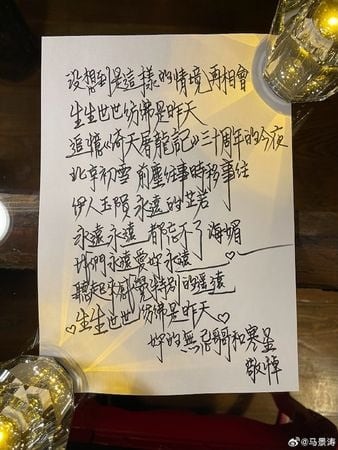 沒想到是這樣的情境再相會
生生世世彷彿是昨天
追憶《倚天屠龍記》三十周年的今夜
北京初雪 前塵往事時移事往
伊人玉殞 永遠的芷若
永遠永遠 都忘不了海媚
我們永遠愛你永遠
聽起來感覺特別的遙遠
生生世世彷彿是昨天
妳的無忌哥和寒星
敬悼
@马景涛